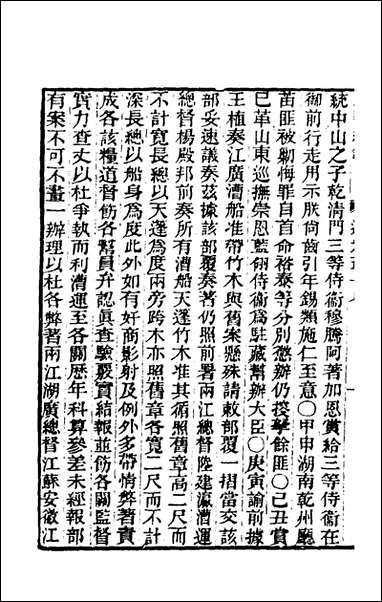 統中山之子乾清門三等侍衞穆騰阿著加恩賞給三等侍衞在
御前行走用示朕倚齒引年錫類施仁至意〇甲申湖南乾州廳
苗匪被勦悔罪自首命裕泰等分別懲辦仍搜拏餘匪〇己丑賞
已革山東巡撫崇恩藍翎侍衞為駐藏幫辦大臣〇庚寅諭前據
王植奏江廣漕船准帶竹木與舊案懸殊請敕部覆一摺當交該
部妥速議奏茲據該部覆奏著仍照前署兩江總督陸建瀛漕運
總督楊殿邦前奏所有漕船天蓬竹木准其循照舊章高二尺而
不計寬長總以天蓬為度兩旁跨木亦照舊章各寬二尺而不計
深長總以船身為度此外如有奸商影射及例外多帶情弊著責
成各該糧道督飭各幫員弁認眞查驗覈實結報並飭各關監督
實力查𠀋以杜爭執而利漕運至各關歷年科算參差未經報部
有案不可不畫一辦理以杜各弊著兩江湖廣總督江蘇安徽江